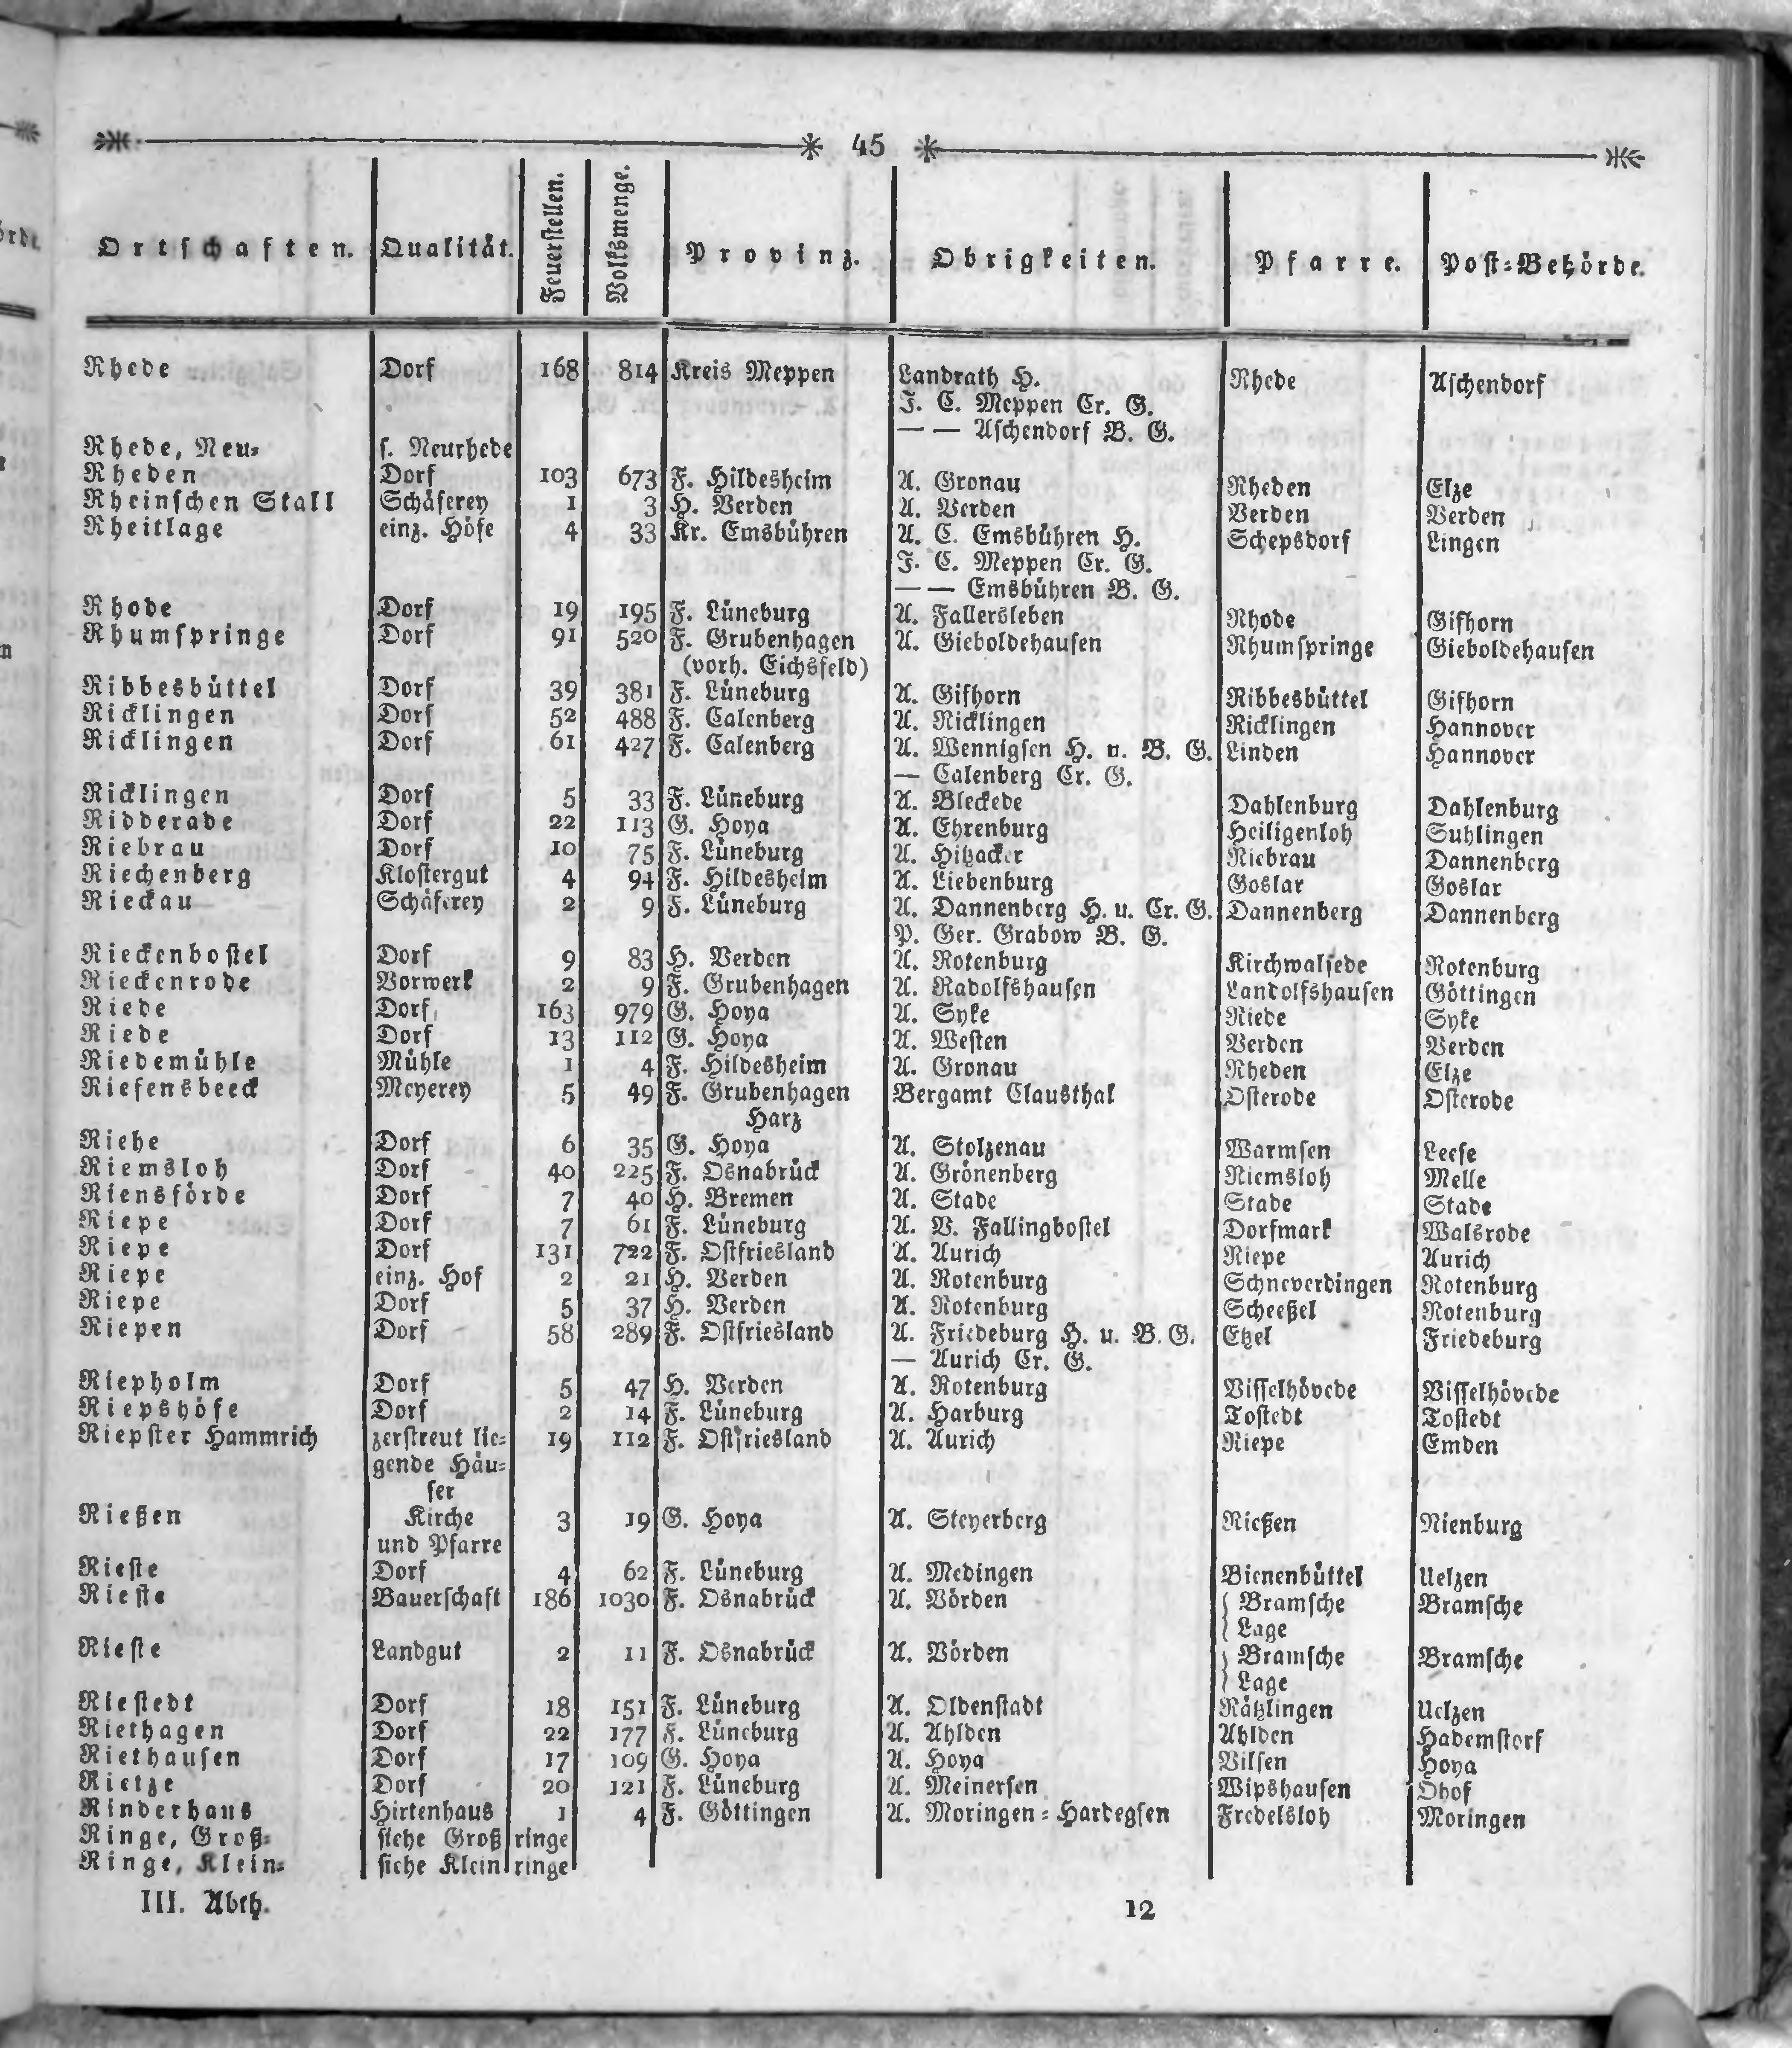 45
Ortschaften. Qualität. Feuerstellen. Volksmenge. Provinz. Obrigkeiten. Pfarre. Post=Behörde.
Rhede Dorf 168 814 Kreis Meppen Landrath H. Rhede Aschendorf
J. C. Meppen Cr. G.
— — Aschendorf B. G.
Rhede, Neu= s. Neurhede
Rheden Dorf 103 673 F. Hildesheim A. Gronau Rheden Elze
Rheinschen Stall Schäferey 1 3 H. Verden A. Verden Verden Verden
Rheitlage einz. Höfe 4 33 Kr. Emsbühren A. C. Emsbühren H. Schepsdorf Lingen
J. C. Meppen Cr. G.
— — Emsbühren B. G.
Rhode Dorf 19 195 F. Lüneburg A. Fallersleben Rhode Gifhorn
Rhumspringe Dorf 91 520 F. Grubenhagen A. Gieboldehausen Rhumspringe Gieboldehausen
(vorh. Eichsfeld)
Ribbesbüttel Dorf 39 381 F. Lüneburg A. Gifhorn Ribbesbüttel Gifhorn
Ricklingen Dorf 52 488 F. Calenberg A. Ricklingen Ricklingen Hannover
Ricklingen Dorf 61 427 F. Calenberg A. Wennigsen H. u. B. G. Linden Hannover
— Calenberg Cr. G.
Ricklingen Dorf 5 33 F. Lüneburg A. Bleckede Dahlenburg Dahlenburg
Ridderade Dorf 22 113 G. Hoya A. Ehrenburg Heiligenloh Suhlingen
Riebrau Dorf 10 75 F. Lüneburg A. Hitzacker Riebrau Dannenberg
Riechenberg Klostergut 4 94 F. Hildesheim A. Liebenburg Goslar Goslar
Rieckau Schäferey 2 9 F. Lüneburg A. Dannenberg H. u. Cr. G. Dannenberg Dannenberg
P. Ger. Grabow B. G.
Rieckenbostel Dorf 9 83 H. Verden A. Rotenburg Kirchwalsede Rotenburg
Rieckenrode Vorwerk 2 9 F. Grubenhagen A. Radolfshausen Landolfshausen Göttingen
Riede Dorf 163 979 G. Hoya A. Syke Riede Syke
Riede Dorf 13 112 G. Hoya A. Westen Verden Verden
Riedemühle Mühle 1 4 F. Hildesheim A. Gronau Rheden Elze
Riefensbeeck Meyerey 5 49 F. Grubenhagen Bergamt Clausthal Osterode Osterode
Harz
Riehe Dorf 6 35 G. Hoya A. Stolzenau Warmsen Leese
Riemsloh Dorf 40 225 F. Osnabrück A. Grönenberg Riemsloh Melle
Riensförde Dorf 7 40 H. Bremen A. Stade Stade Stade
Riepe Dorf 7 61 F. Lüneburg A. V. Fallingbostel Dorfmark Walsrode
Riepe Dorf 131 722 F. Ostfriesland A. Aurich Riepe Aurich
Riepe einz. Hof 2 21 H. Verden A. Rotenburg Schneverdingen Rotenburg
Riepe Dorf 5 37 H. Verden A. Rotenburg Scheeßel Rotenburg
Riepen Dorf 58 289 F. Ostfriesland A. Friedeburg H. u. B. G. Etzel Friedeburg
— Aurich Cr. G.
Riepholm Dorf 5 47 H. Verden A. Rotenburg Visselhövede Visselhövede
Riepshöfe Dorf 2 14 F. Lüneburg A. Harburg Tostedt Tostedt
Riepster Hammrich zerstreut lie= 19 112 F. Ostfriesland A. Aurich Riepe Emden
gende Häu=
ser
Rießen Kirche 3 19 G. Hoya A. Steyerberg Rießen Nienburg
und Pfarre
Rieste Dorf 4 62 F. Lüneburg A. Medingen Bienenbüttel Uelzen
Rieste Bauerschaft 186 1030 F. Osnabrück A. Vörden Bramsche Bramsche
Lage
Rieste Landgut 2 11 F. Osnabrück A. Vörden Bramsche Bramsche
Lage
Riestedt Dorf 18 151 F. Lüneburg A. Oldenstadt Rätzlingen Uelzen
Riethagen Dorf 22 177 F. Lüneburg A. Ahlden Ahlden Hademstorf
Riethausen Dorf 17 109 G. Hoya A. Hoya Vilsen Hoya
Rietze Dorf 20 121 F. Lüneburg A. Meinersen Wipshausen Ohof
Rinderhaus Hirtenhaus 1 4 F. Göttingen A. Moringen=Hardegsen Fredelsloh Moringen
Ringe, Groß= siehe Großringe
Ringe, Klein= siehe Kleinringe
III. Abth. 12